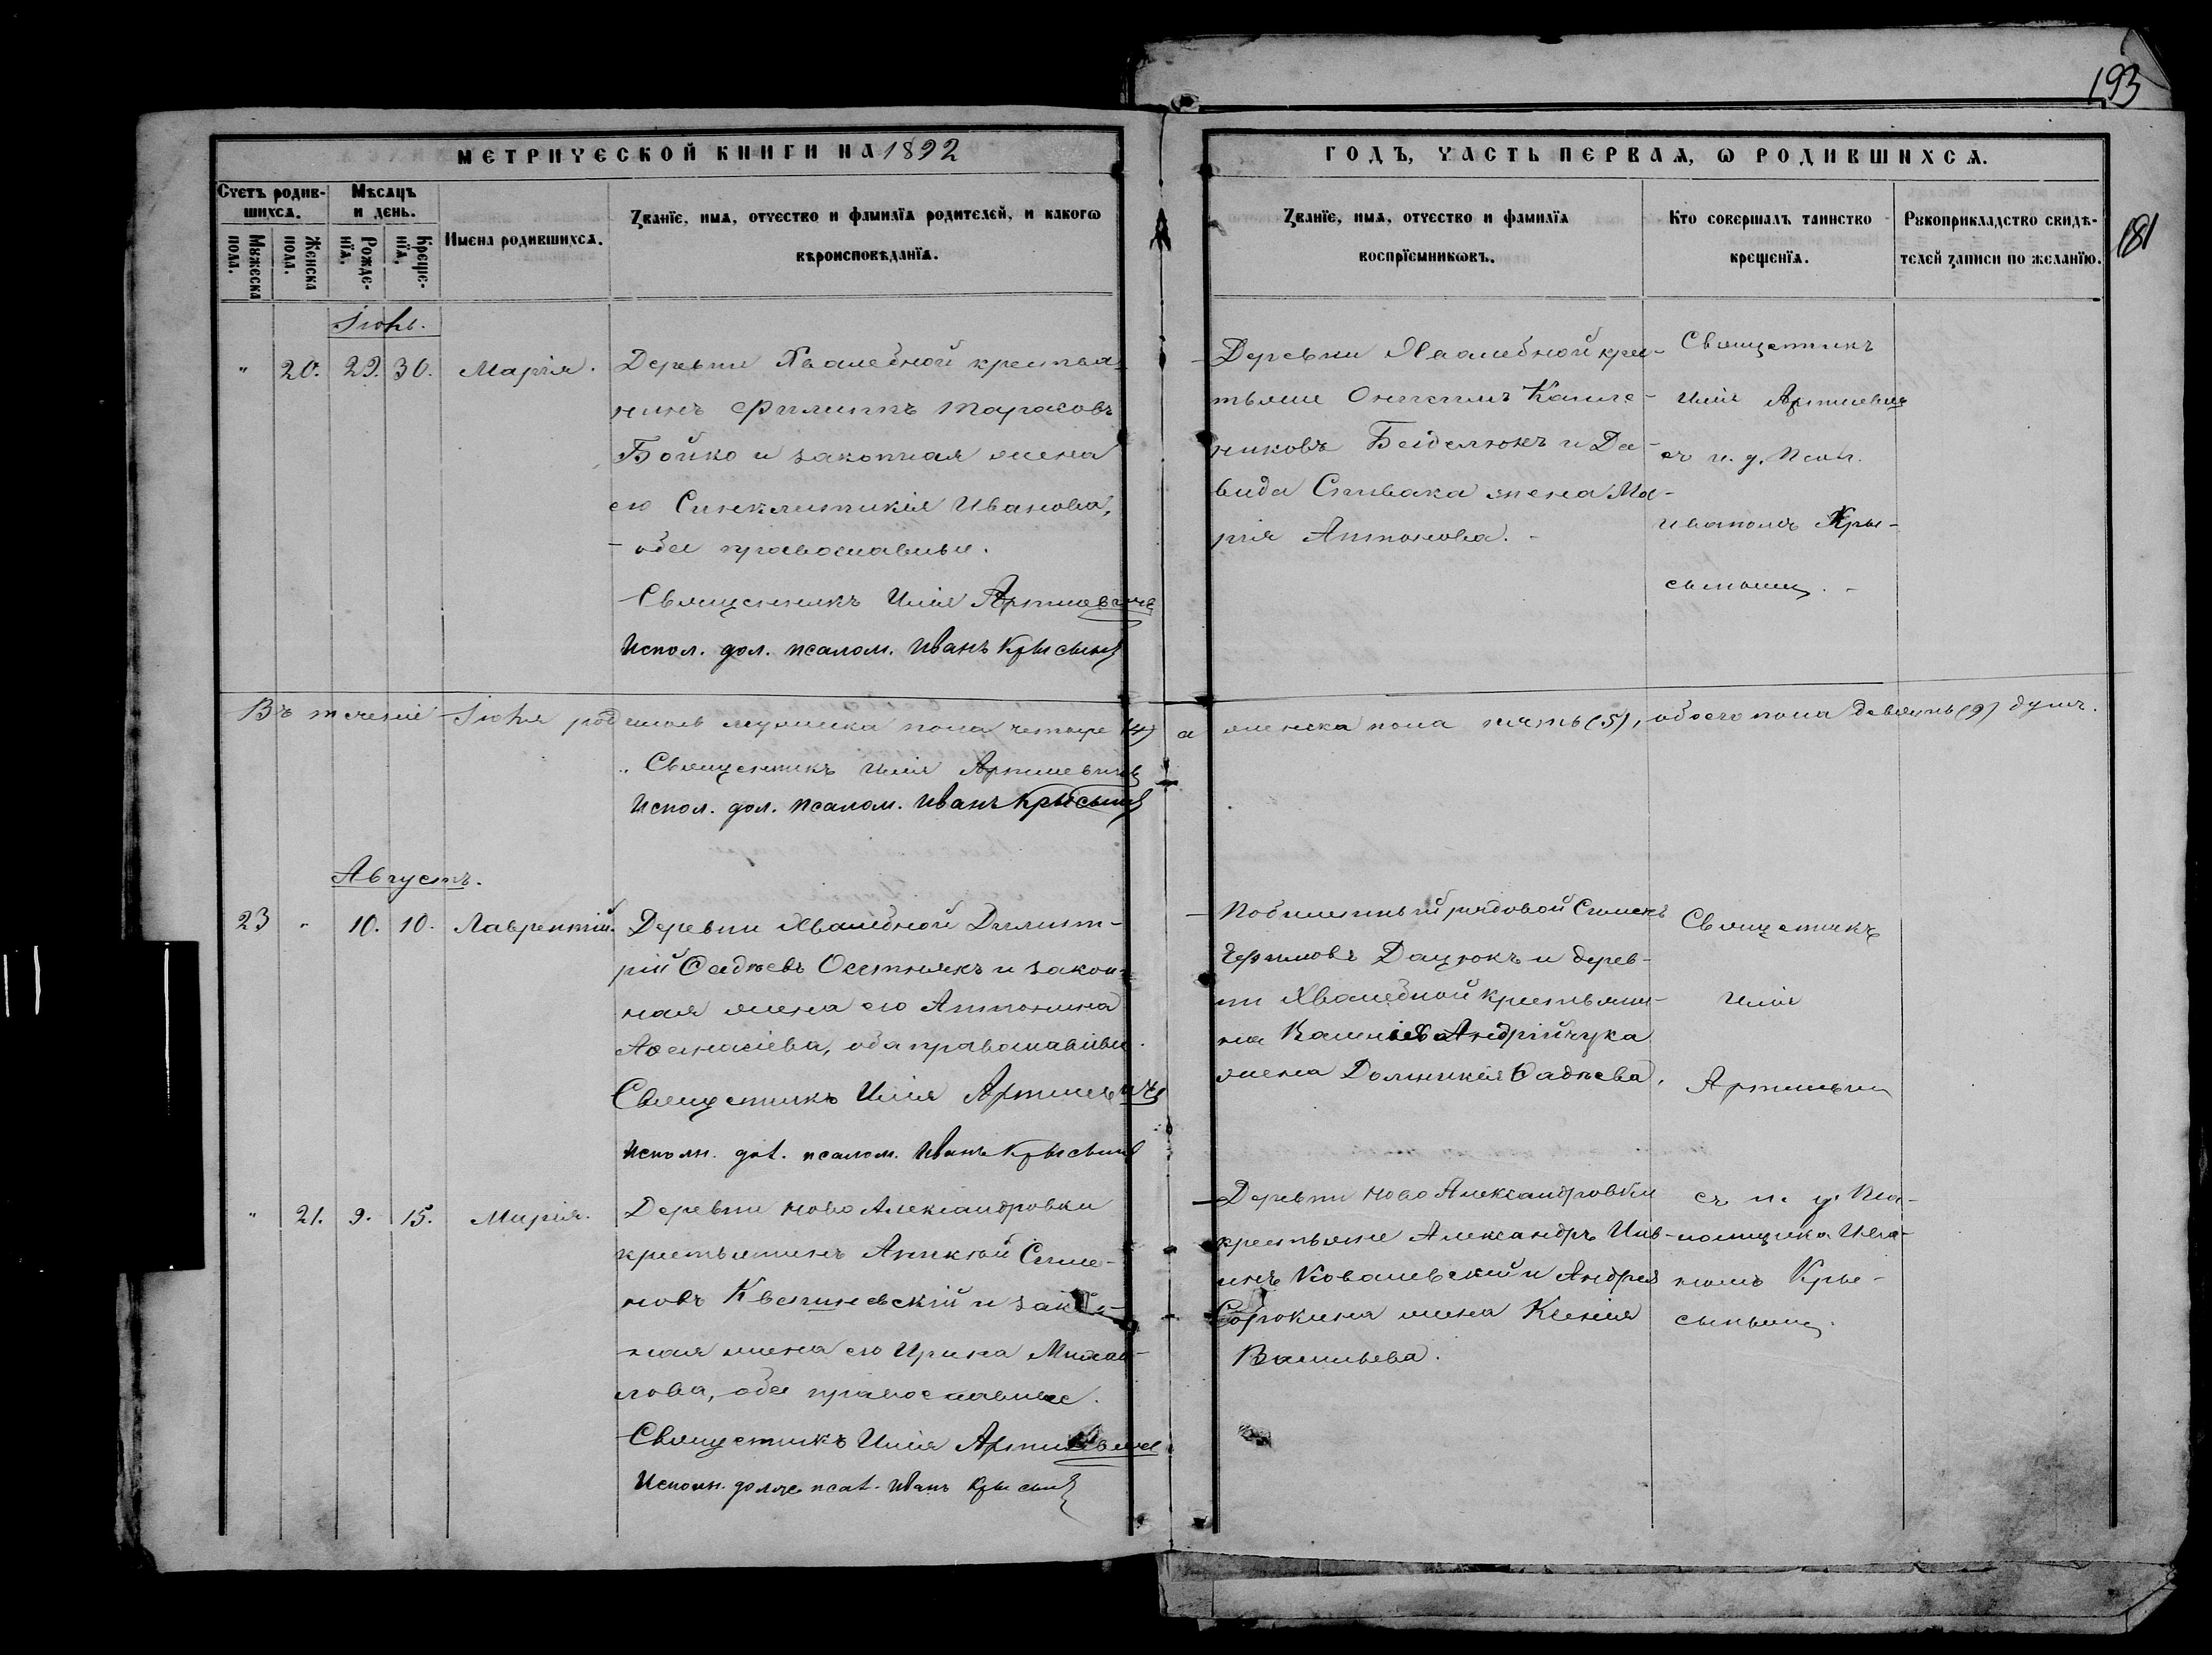 193
МЕТРИЧЕСКОЙ КНИГИ НА 1892
ГОДЪ, ЧАСТЬ ПЕРВАѦ, Ѡ РОДИВШИХСѦ.
181
Счетъ родив-
шихсѧ.
Мꙋжеска
полѧ.
Женска
полѧ.
Мѣсѧцъ
и день.
Рожде-
нїѧ.
Креще-
нїѧ.
Имена родившихсѧ.
Званїе, имѧ, отчество и фамилїѧ родителей, и какогѡ
вѣроисповѣданїѧ.
Званїе, имѧ, отчество и фамилїѧ
воспрїемникѡвъ.
Кто совершалъ таинство
крещенїѧ.
Рꙋкоприкладство свидѣ-
телей записи по желанїю.
" 20. 29. 30. Марія.
Деревни Хвалебной крестья-
нинъ Филиппъ Тарасовъ
Бойко и законная жена
его Синклитикія Иванова,
оба православные.
Священникъ Илія Артшевичъ
Испол. дол. псалом. Иванъ Крысинъ
Деревни Хвалебной кре-
стьяне Онисимъ
и Да-
вида Спивака жена Ма-
рія Антонова.
Священникъ
Илія Артшевичъ
съ и. д. псал.
Иваномъ Кры-
Въ теченіе родилось мужеска пола четыре (4)
а женска пола пять (5), обоего пола девять (9) душъ.
Священникъ Илія Артшевичъ
Испол. дол. псалом. Иванъ Крысинъ
Августъ.
23 " 10. 10. Лаврентій.
Деревни Хвалебной Димит-
рій Фадѣевъ и закон-
ная жена его Антонина
Аѳанасіева, оба православные.
Священникъ Илія Артшевичъ
Исполн. дол. псалом. Иванъ Крысинъ
рядовой
Дацюкъ и дерев-
ни Хвалебной крестьяни-
на Андрійчука
жена Домникія Фадѣева.
Священникъ
Илія
Артшевичъ
" 21. 9. 15. Марія.
Деревни Ново Александровки
крестьянинъ Семе-
новъ и закон-
ная жена его Ирина Михай-
лова, оба православные.
Священникъ Илія Артшевичъ
Исполн. должн. псал. Иванъ Крысинъ
Деревни Ново Александровки
крестьяне Александръ Ива-
Ковалевскій и Андрея
Сорокина жена Ксенія
Васильева.
съ и. д. пса-
ломщика Ива-
номъ Кры-